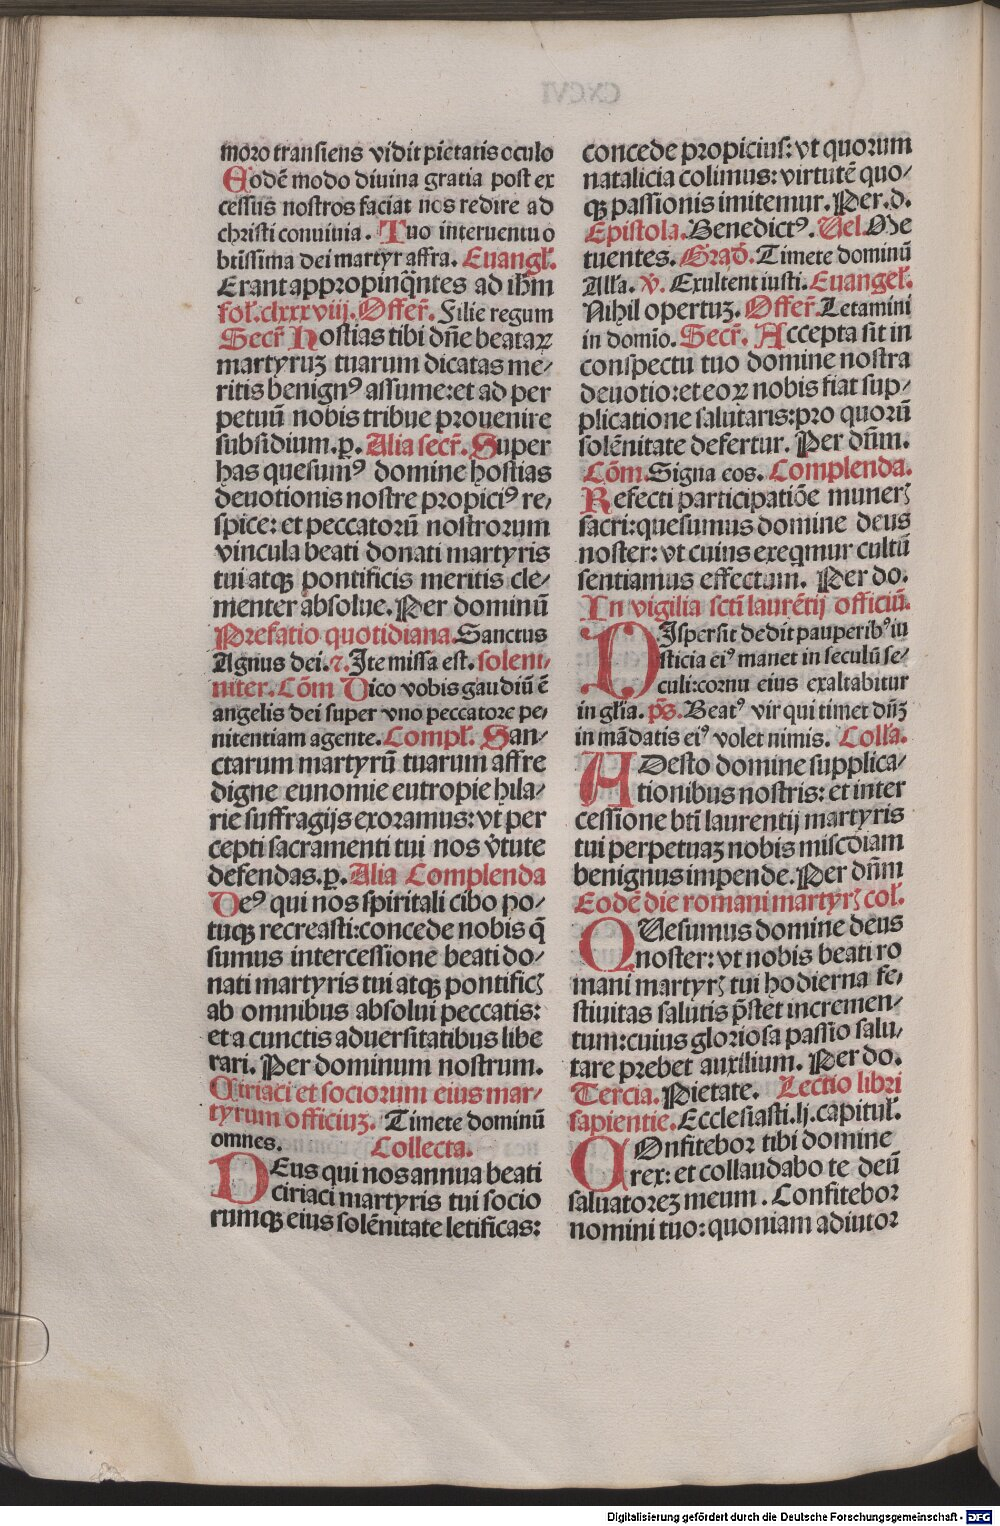 moro transiens vidit pietatis oculo
Eodē modo divina gratia post ex
cessus nostros faciat nos redire ad
christi conuiuia. Tuo interuentu o
btissima dei martyr affra. Euangł.
Erant appropinq̈ntes ad ihm
fol. clxxxviij. Offer̄. Filie regum
Secr̄ Hostias tibi dn̄e beataꝝ
martyruꝫ tuarum dicatas me⸗
ritis benignꝰ assume: et ad per
petuū nobis tribue prouenire
subsidium. p. Alia secr̄. Super
has quesumꝰ domine hostias
deuotionis nostre propiciꝰ re⸗
spice: et peccatorū nostrorum
vincula beati donati martyris
tui atqꝫ pontificis meritis cle⸗
menter absolue. Per dominū
Prefatio quotidiana. Sanctus
Agnus dei. ⁊. Ite missa est. solen⸗
niter. Cōm Dico vobis gaudiū ē
angelis dei super vno peccatore pe⸗
nitentiam agente. Compł. San⸗
ctarum martyrū tuarum affre
digne eunomie eutropie hila⸗
rie suffragijs exoramus: vt per
cepti sacramenti tui nos v̄tute
defendas. p. Alia Complenda
Deꝰ qui nos spiritali cibo po⸗
tuqꝫ recreasti: concede nobis q̄
sumus intercessione beati do⸗
nati martyris tui atqꝫ pontificꝭ
ab omnibus absolui peccatis:
et a cunctis aduersitatibus libe
rari. Per dominum nostrum.
Ciriaci et sociorum eius mar⸗
tyrum officiuꝫ. Timete dominū
omnes. Collecta.
DEus qui nos annua beati
ciriaci martyris tui socio
rumqꝫ eius solēnitate letificas:
concede propicius: vt quorum
natalicia colimus: virtutē quo⸗
qꝫ passionis imitemur. Per. d.
Epistola. Benedictꝰ. Vel. Me
tuentes. Grad̄. Timete dominū
Alła. ꝟ. Exultent iusti. Euangeł.
Nihil opertuꝫ. Offer̄. Letamini
in domio. Secr̄. Accepta sit in
conspectu tuo domine nostra
deuotio: et eoꝝ nobis fiat sup⸗
plicatione salutaris: pro quorū
solēnitate defertur. Per dūm.
Cōm. Signa eos. Complenda.
Refecti participatiōe munerꝭ
sacri: quesumus domine deus
noster: vt cuius exeqmur cultū
sentiamus effectum. Per do.
In vigilia sctī laurētij officiū.
DIspersit dedit pauperibꝰ iu
sticia eiꝰ manet in seculū se⸗
culi: cornu eius exaltabitur
in głia. p̄s. Beatꝰ vir qui timet dn̄ꝫ
in mādatis eiꝰ volet nimis. Colła.
ADesto domine supplica⸗
tionibus nostris: et inter
cessione btī laurentij martyris
tui perpetuaꝫ nobis miscdiam
benignus impende. Per dn̄m
Eodē die romani martyrꝭ coł.
QUesumus domine deus
noster: vt nobis beati ro
mani martyrꝭ tui hodierna fe⸗
stiuitas salutis p̄stet incremen⸗
tum: cuius gloriosa passio salu⸗
tare prebet auxilium. Per do.
Tercia. Pietate. Lectio libri
sapientie. Ecclesiasti. lj. capituł.
COnfitebor tibi domine
rex: et collaudabo te deū
saluatoreꝫ meum. Confitebor
nomini tuo: quoniam adiutor
Digitalisierung gefördert durch die Deutsche Forschungsgemeinschaft - DFG